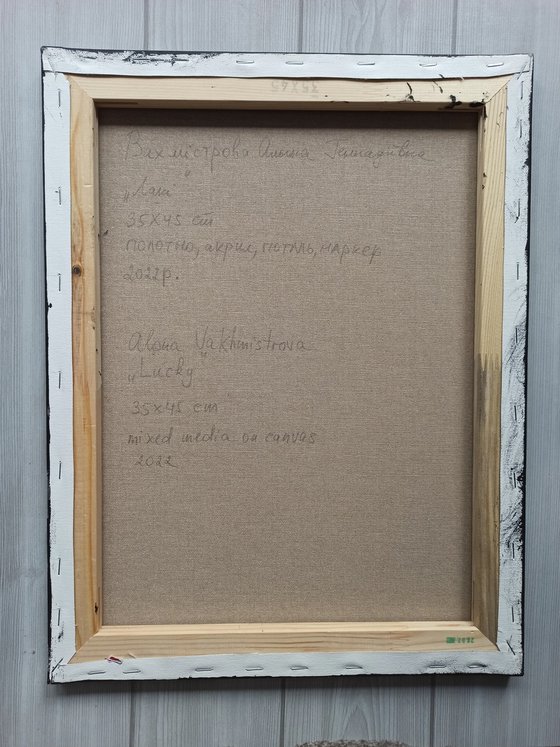 35X45
Вахмістрова Альона Геннадіївна
„Лакі"
35х45 см
полотно, акрил, поталь, маркер
2022р.
Alona Vakhmistrova
„Lucky"
35x45 cm
mixed media on canvas
2022